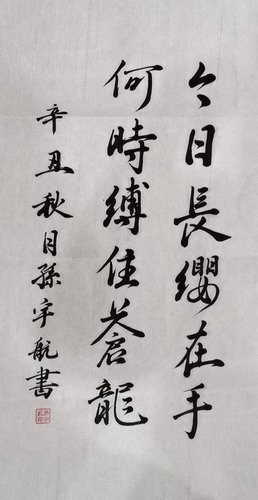 今日長纓在手
何時縛住蒼龍
辛丑秋月孫宇航書